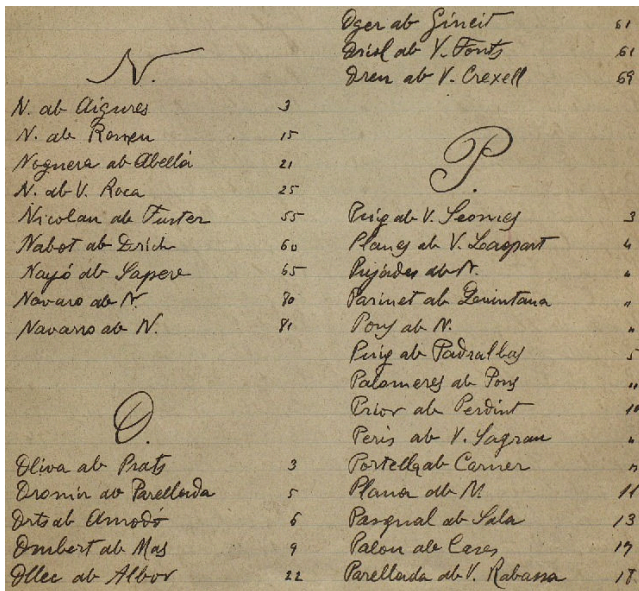 N.
N. ab Aigures 3
N. ab Romeu 15
Noguera ab Abellá 21
N. ab V. Roca 25
Nicolau ab Fuster 55
Nabot ab Erich 60
Nayó ab Sapere 65
Navaro ab N. 80
Navarro ab N. 81
O.
Oliva ab Prats 3
Oromir ab Parellada 5
Orts ab Amodó 6
Ombert ab Mas 9
Ollec ab Albor 22
Oger ab Gineit 61
Oriol ab V. Fonts 61
Oreu ab V. Crexell 69
P.
Puig ab V. 3
Planes ab V. Llaopart 4
Pujádes ab N. "
Parinet ab "
Pons ab N.
Puig ab Padralbas 5
Palomeres ab Pons "
Prior ab Perdint 10
Peris ab V. Sagrau "
Portella ab Carner "
Plana ab M 11
Pasqual ab Sala 13
Palou ab Cases 17
Parellada ab V. Rabassa 18